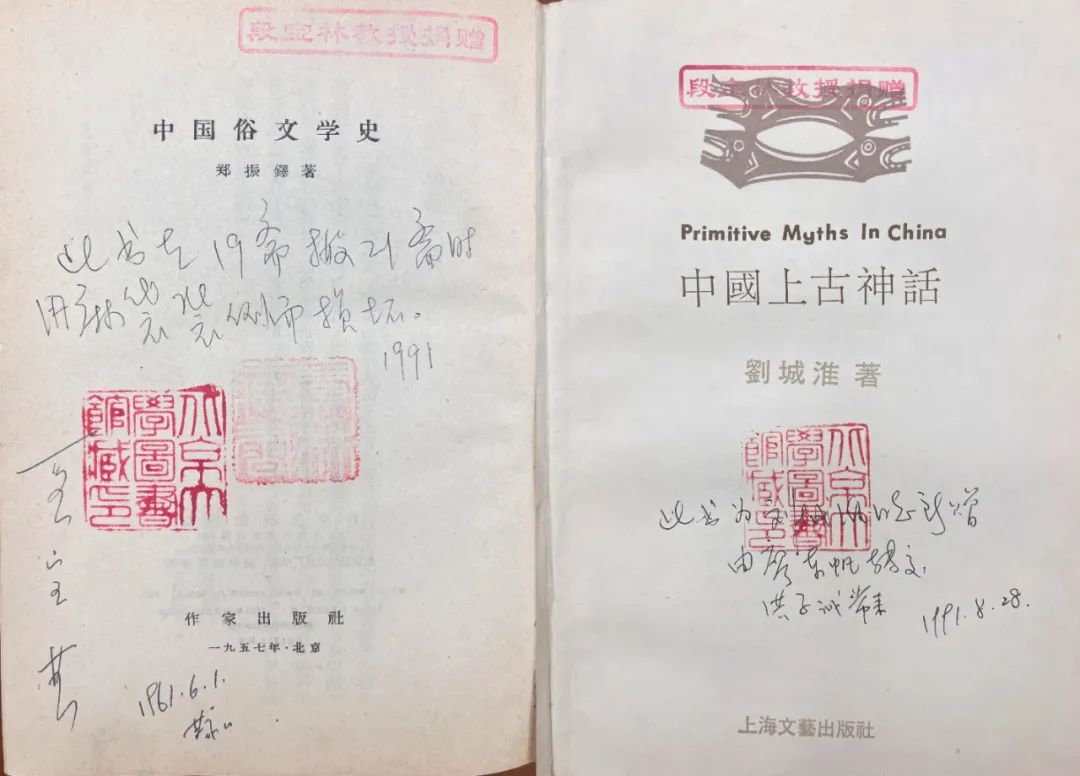 段宝林教授捐赠
中国俗文学史
郑振鐸著
此书在19斋搬21斋时
用麻袋装倒而损坏。
1991
北京大
學圖書
館藏印
作家出版社
一九五七年·北京
1961.6.1.
段宝林教授捐赠
Primitive Myths In China
中國上古神話
劉城淮 著
北京大
學圖書
館藏印
此书为刘城淮所赠
由
洪子诚带来
1991.8.28.
上海文藝出版社